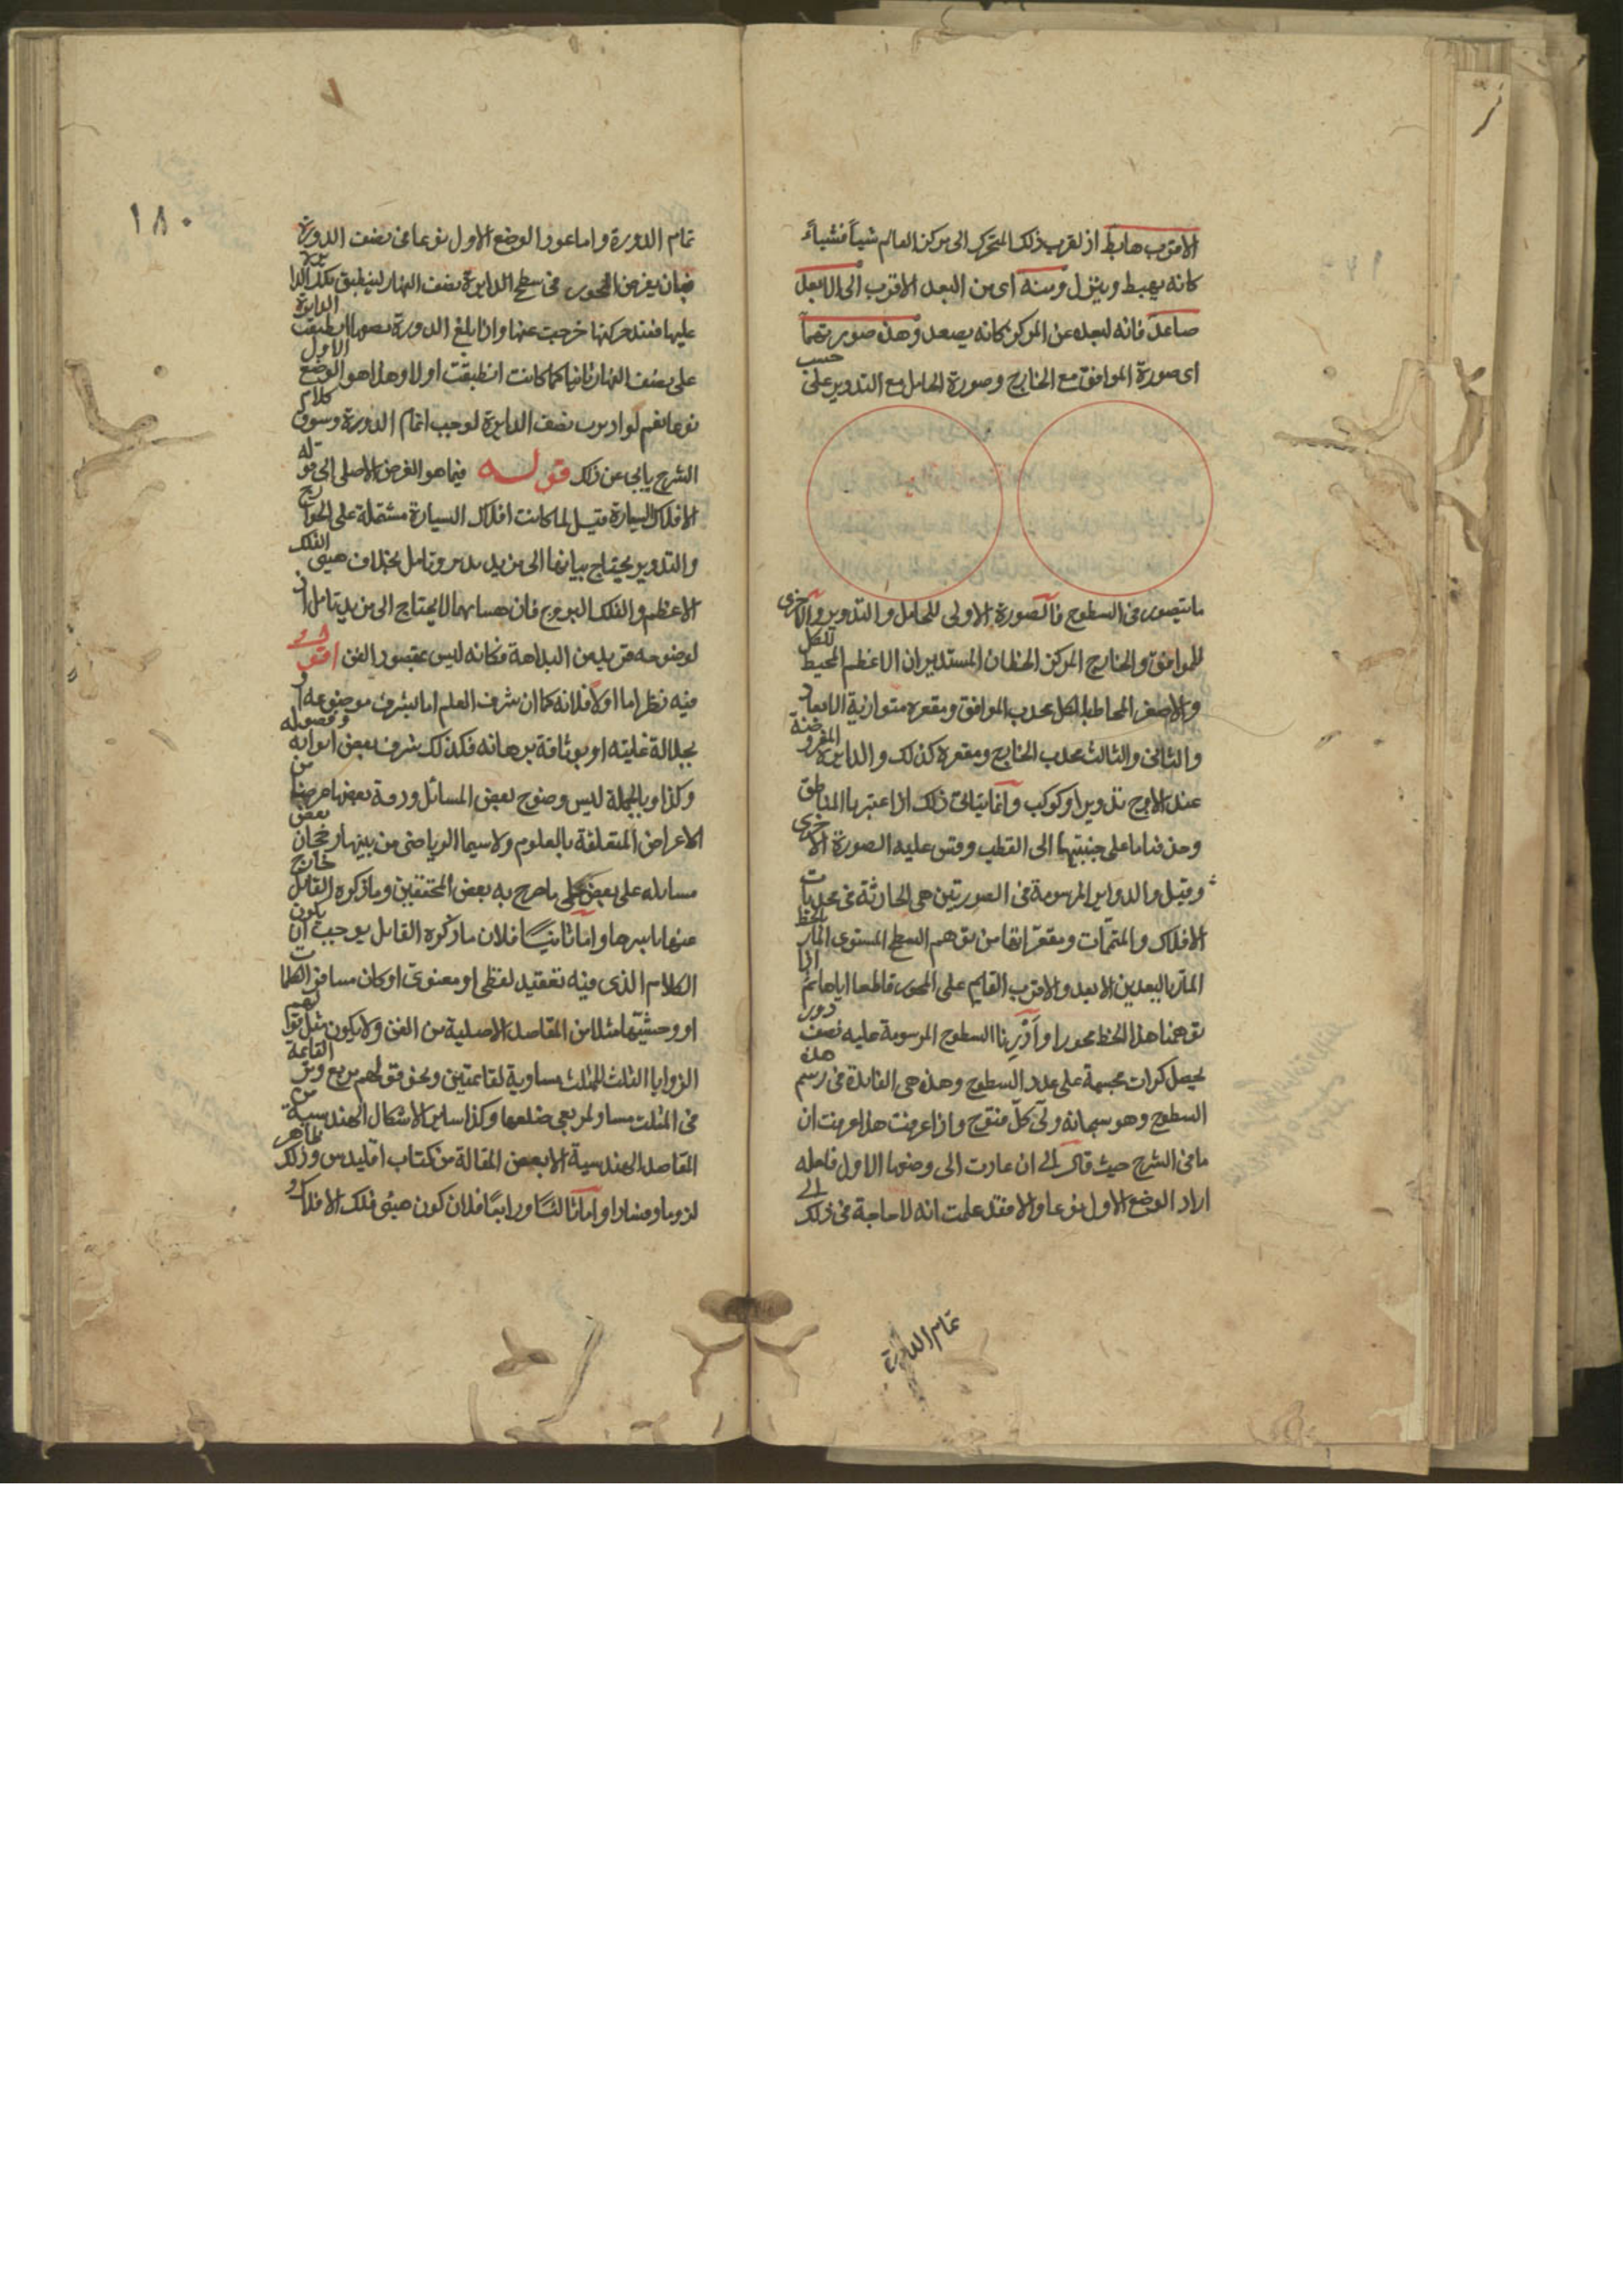 الاقرب هابط اذ لقرب ذلك المتحرك الى مركز العالم شيأ فشيأ
كانه يهبط وينزل ومنه اى من البعد الاقرب الى الابعد
صاعد فانه لبعده عن المركز كانه يصعد وهذه صورتهما
اى صورة الموافق مع الخارج وصورة الحامل مع التدوير على حسب
ما يتصور فى السطوح فالصورة الاولى للحامل والتدوير والاخرى
للموافق والخارج المركز الخطان المستديران الاعظم المحيط للكل
والاصغر المحاط بالكل محدب الموافق ومقعره متوازية الابعاد
والثانى والثالث محدب الخارج ومقعره كذلك والدايرة المفروضة
عند الاوج تدوير او كوكب وانما يتاتى ذلك اذا اعتبرنا المناطق
وحذفنا ما على جنبتيها الى القطب وقس عليه الصورة الاخرى
وقيل والدواير المرسومة فى الصورتين هى الحادثة فى محدبات
الافلاك والمتممات ومقعراتها من توهم السطح المستوى المار بالخط
المار بالبعدين الابعد والاقرب القايم على المحور قاطعا اياها ثم اذا
توهمنا هذا الخط محورا وادرنا السطوح المرسومة عليه نصف دور
يحصل كرات مجسمة على عدد السطوح وهذه هى الفايدة فى رسم هذه
السطوح وهو سبحانه ولى كل فتوح واذا عرفت هذا عرفت ان
ما فى الشرح حيث قال الى ان عادت الى وضعها الاول فلعله
اراد الوضع الاول نوعا والا فقد علمت انه لا حاجة فى ذلك الى
تمام الدورة
١٨٠
تمام الدورة واما عود الوضع الاول نوعا فى نصف الدورة
فبان يفرض المحور فى سطح الدايرة نصف النهار لينطبق تلك الدايرة
عليها فعند حركتها خرجت عنها واذا بلغ الدورة نصفها انطبقت الدايرة
على نصف النهار ثانيا كما كانت انطبقت اولا وهذا هو الوضع الاول
نوعا نعم لو اديرت نصف الدايرة لوجب اتمام الدورة وسوق كلام
الشرح يابى عن ذلك قوله فيما هو الغرض الاصلى الى قوله
الافلاك السيارة قيل لما كانت افلاك السيارة مشتملة على الخوارج
والتدوير يحتاج بيانها الى مزيد تدبر وتامل بخلاف هيئى الفلك
الاعظم والفلك البروج فان هيئاتهما لا يحتاج الى مزيد تامل اذ
لوضوحه قريب من البداهة فكانه ليس بمقصود الفن اقول
فيه نظر اما اولا فلانه كما ان شرف العلم اما بشرف موضوعه او
بجلالة غايته او بوثاقة برهانه فكذلك شرف بعض ابوابه وفصوله
وكذا وبالجملة ليس وضوح بعض المسائل ودقة بعضها من
الاعراض المتعلقة بالعلوم ولاسيما الرياضى من بينها ورجحان بعض
مسايله على بعض على ما صرح به بعض المحققين وما ذكره القايل خارج
عنها باسرها واما ثانيا فلان ما ذكره القايل يوجب ان يكون
الكلام الذى فيه تعقيد لفظى او معنوى او كان مسافر الكلمات
او وحشيتها مثلا من المقاصد الاصلية من الفن ولا يكون مثل قولهم
الزوايا الثلث للمثلث مساوية لقائمتين ونحو قولهم مربع وتر القايمة
فى المثلث مساو لمربعى ضلعها وكذا ساير الاشكال الهندسية من
المقاصد الهندسية الا بعض المقالة من كتاب اقليدس وذلك ظاهر
لزوما وفسادا واما ثالثا ورابعا فلان كون هيئى فلك الافلاك و